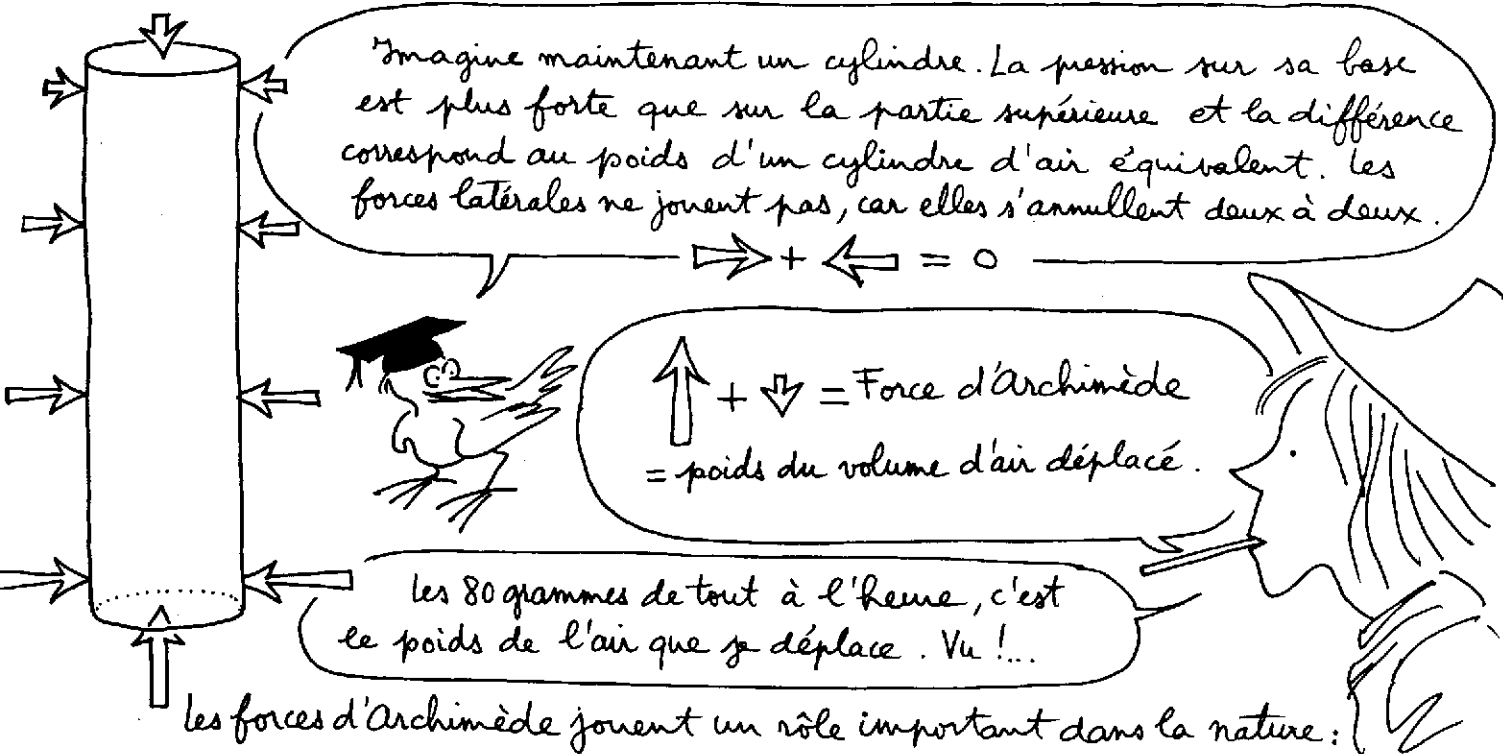 Imagine maintenant un cylindre. La pression sur sa base
est plus forte que sur la partie supérieure et la différence
correspond au poids d'un cylindre d'air équivalent. Les
forces latérales ne jouent pas, car elles s'annullent deux à deux.
+ = 0
+ = Force d'Archimède
= poids du volume d'air déplacé.
Les 80 grammes de tout à l'heure, c'est
le poids de l'air que je déplace. Vu !...
Les forces d'Archimède jouent un rôle important dans la nature :